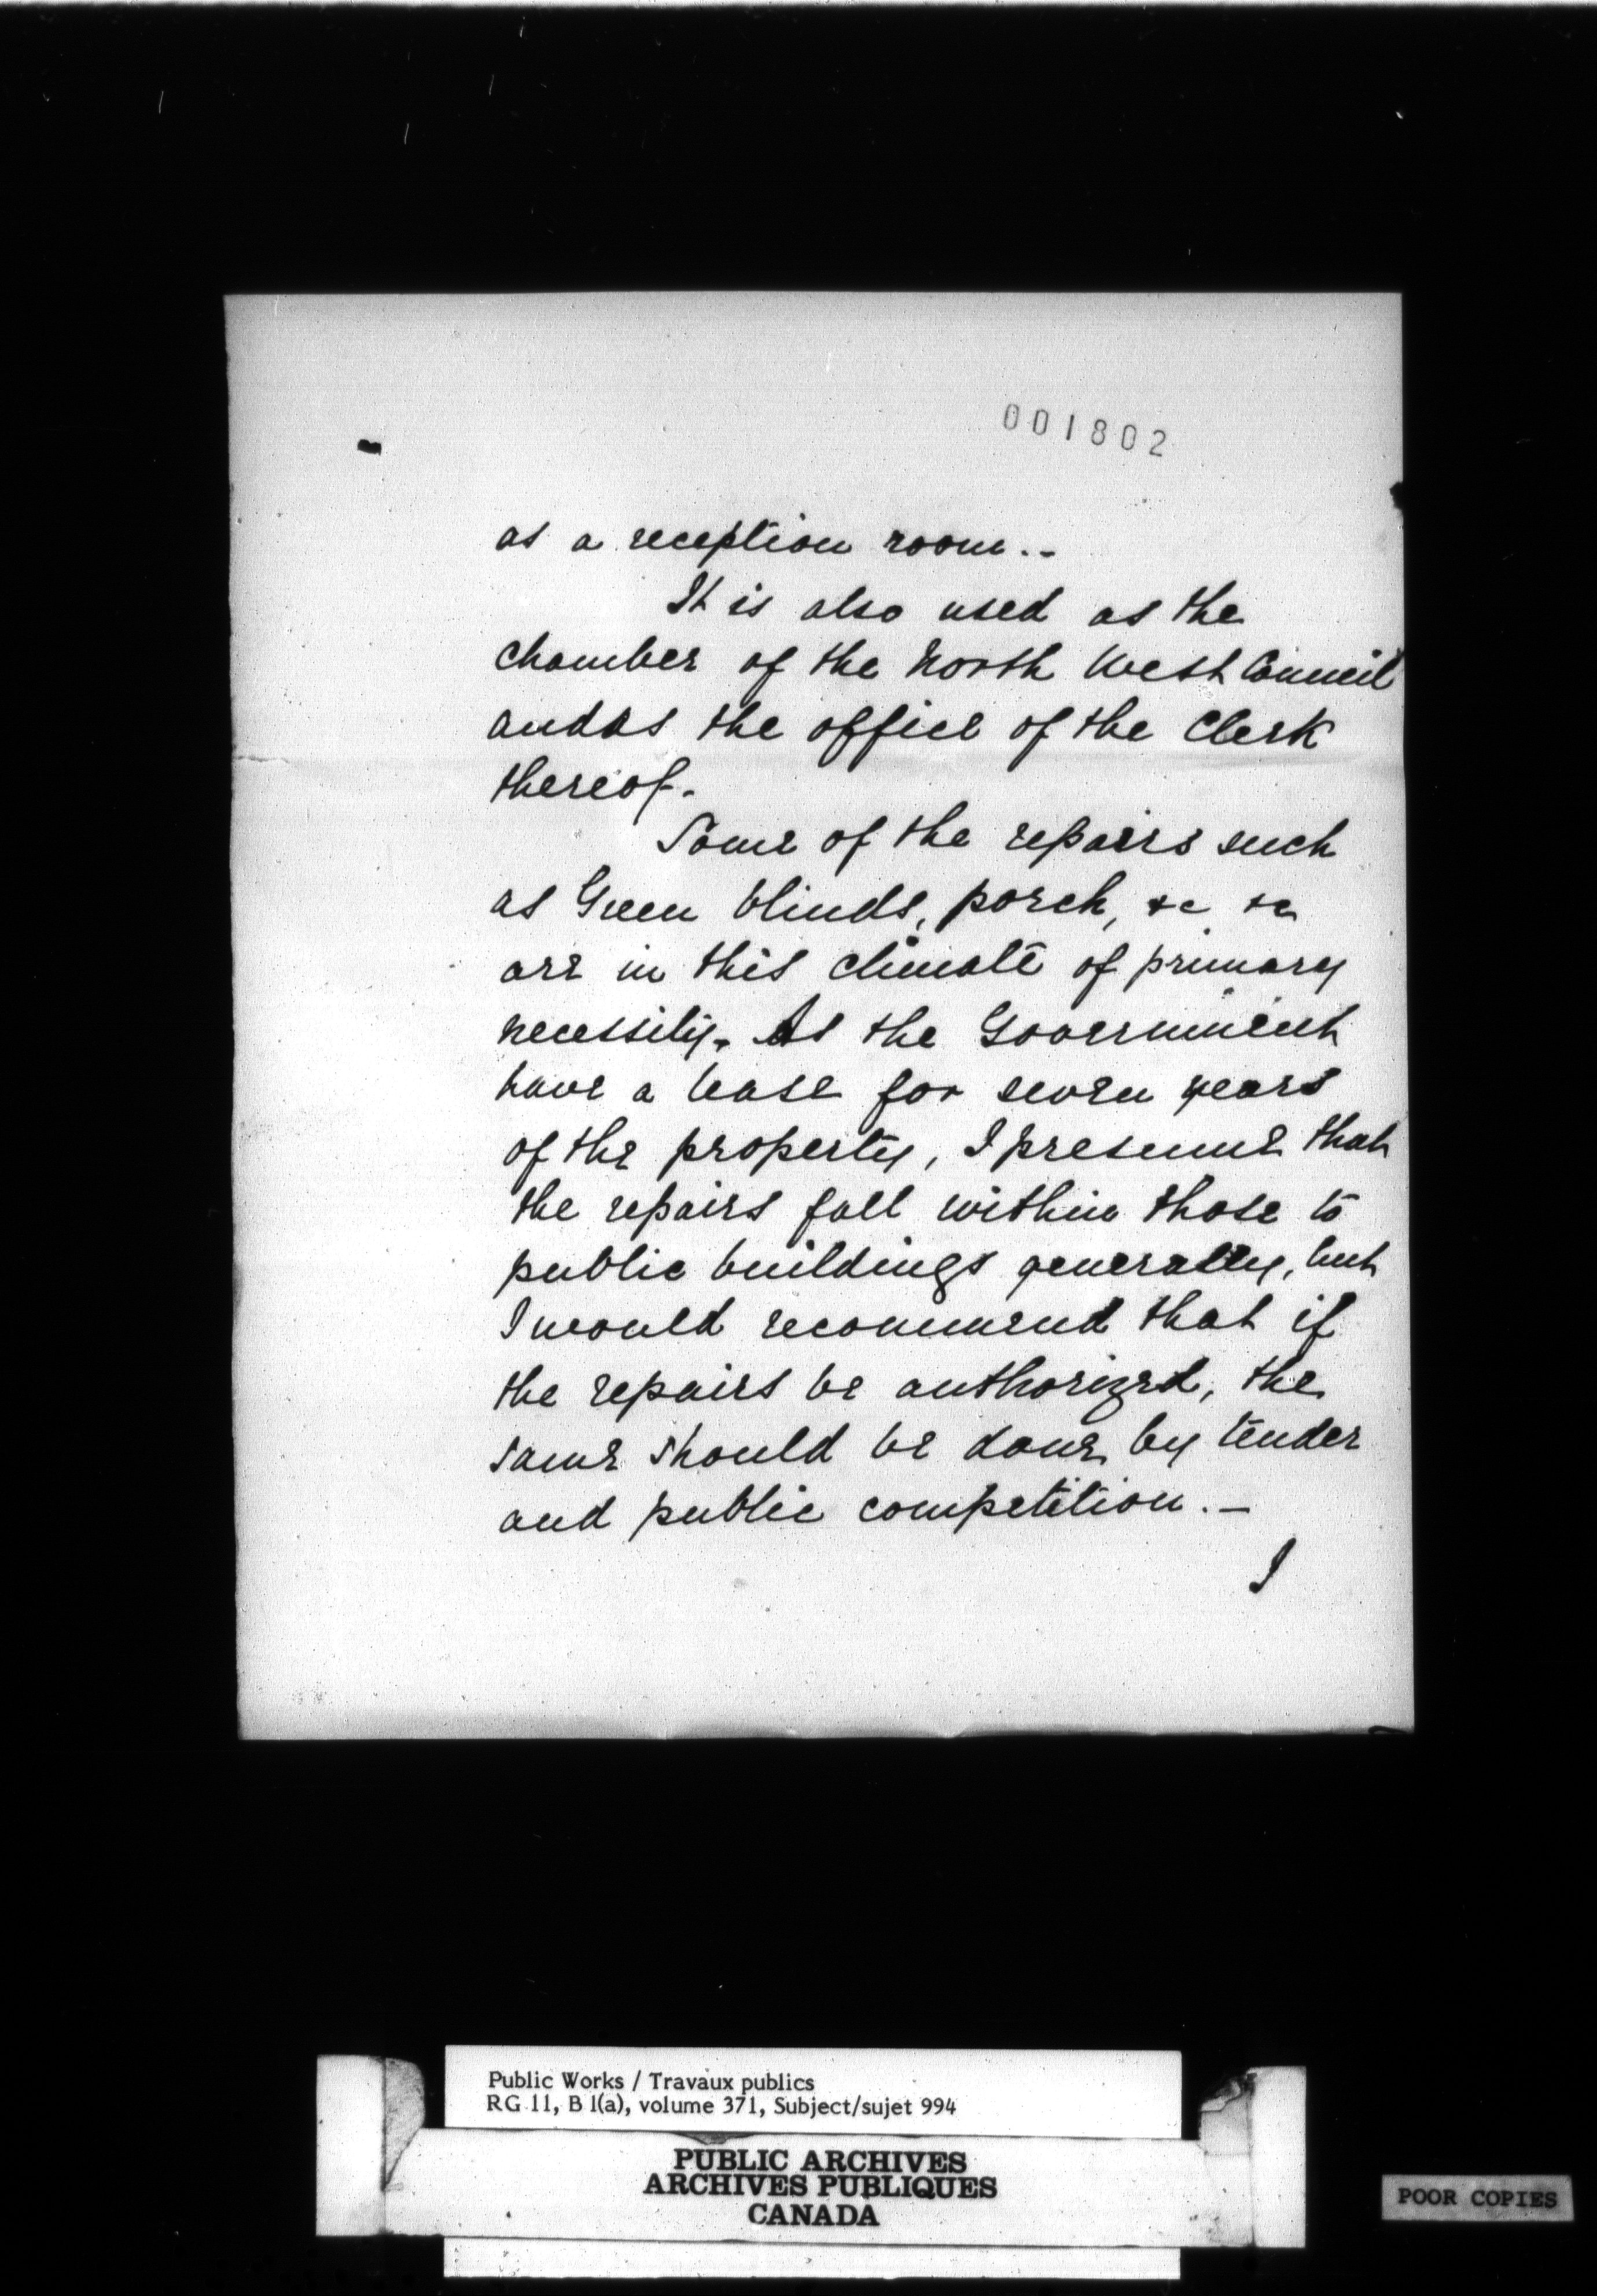 001802
as a reception room.-
It is also used as the
chamber of the North West Council
and as the office of the Clerk
thereof.
Some of the repairs such
as Green blinds, porch, &c &c
are in this climate of primary
necessity. As the Government
have a lease for seven years
of the property, I presume that
the repairs fall within those to
public buildings generally, but
I would recommend that if
the repairs be authorized, the
same should be done by tender
and public competition.-
I
Public Works / Travaux publics
RG 11, B 1(a), volume 371, Subject/sujet 994
PUBLIC ARCHIVES
ARCHIVES PUBLIQUES
CANADA
POOR COPIES